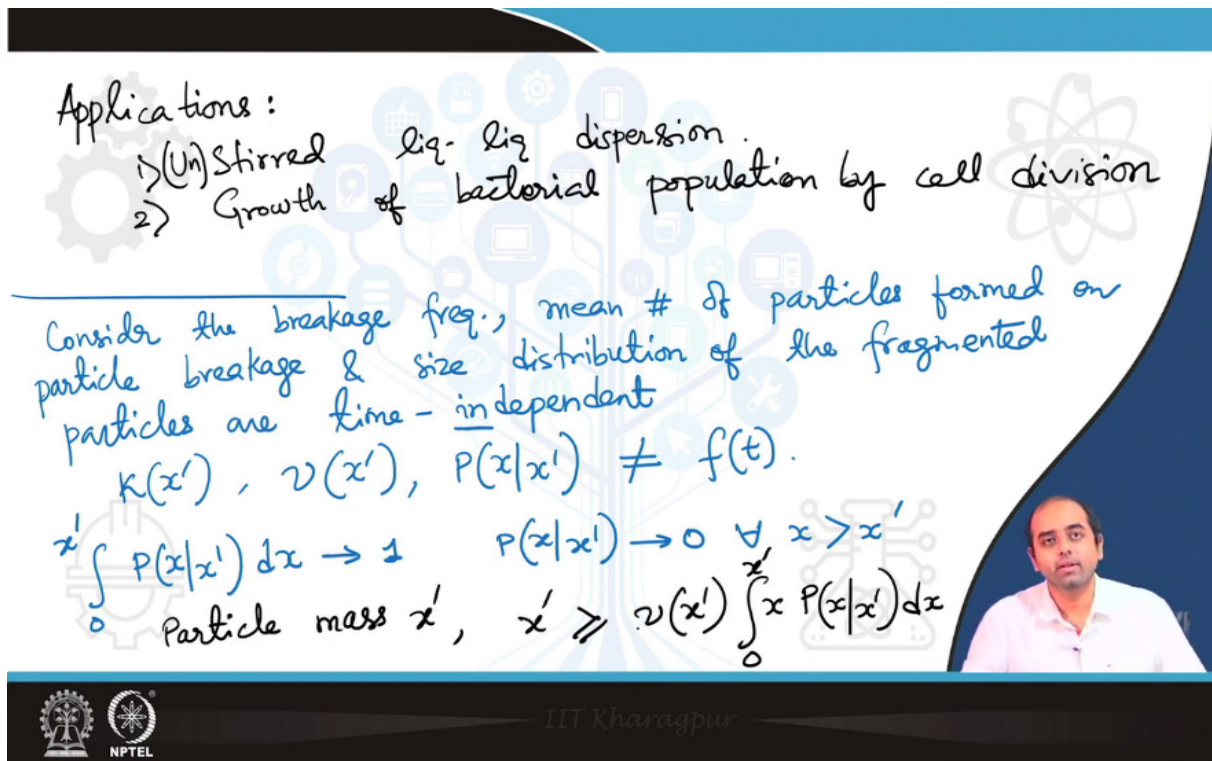 Applications:
1) (Un)Stirred liq-liq dispersion.
2) Growth of bacterial population by cell division
Consider the breakage freq., mean # of particles formed on
particle breakage & size distribution of the fragmented
particles are time-independent
K(x'), ν(x'), P(x|x') ≠ f(t).
∫₀^x' P(x|x') dx → 1    P(x|x') → 0 ∀ x > x'
Particle mass x', x' ⩾ ν(x') ∫₀^x' x P(x|x') dx
IIT Kharagpur
NPTEL